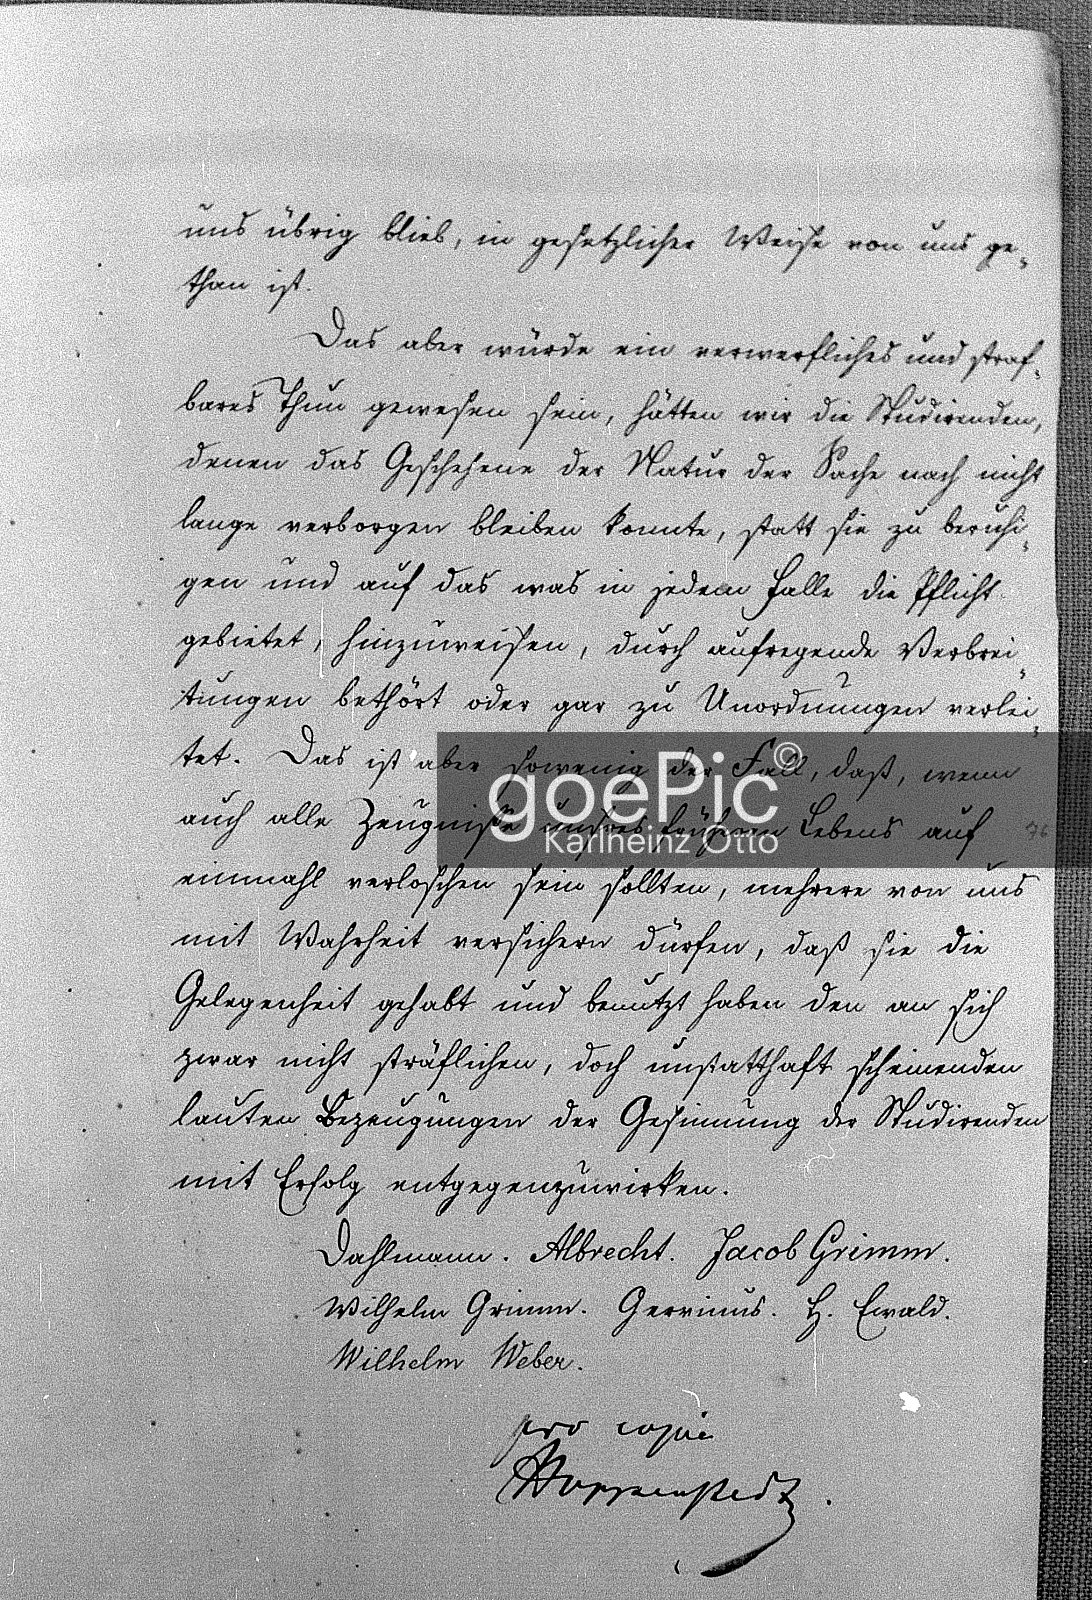 uns übrig blieb, in gesetzlicher Weise von uns ge-
than ist.
Das aber würde ein verwerfliches und straf-
bares Thun gewesen sein, hätten wir die Studirenden,
denen das Geschehene der Natur der Sache nach nicht
lange verborgen bleiben konnte, statt sie zu beruhi-
gen und auf das was in jedem Falle die Pflicht
gebietet, hinzuweisen, durch aufregende Verbrei-
tungen bethört oder gar zu Unordnungen verlei-
tet. Das ist aber sowenig der Fall, daß, wenn
auch alle Zeugniße unsres früheren Lebens auf
einmahl verloschen sein sollten, mehrere von uns
mit Wahrheit versichern dürfen, daß sie die
Gelegenheit gehabt und benutzt haben den an sich
zwar nicht sträflichen, doch unstatthaft scheinenden
lauten Bezeugungen der Gesinnung der Studirenden
mit Erfolg entgegenzuwirken.
Dahlmann. Albrecht. Jacob Grimm.
Wilhelm Grimm. Gervinus. H. Ewald.
Wilhelm Weber.
pro copia
Hoppenstedt.
goePic©
Karlheinz Otto
76